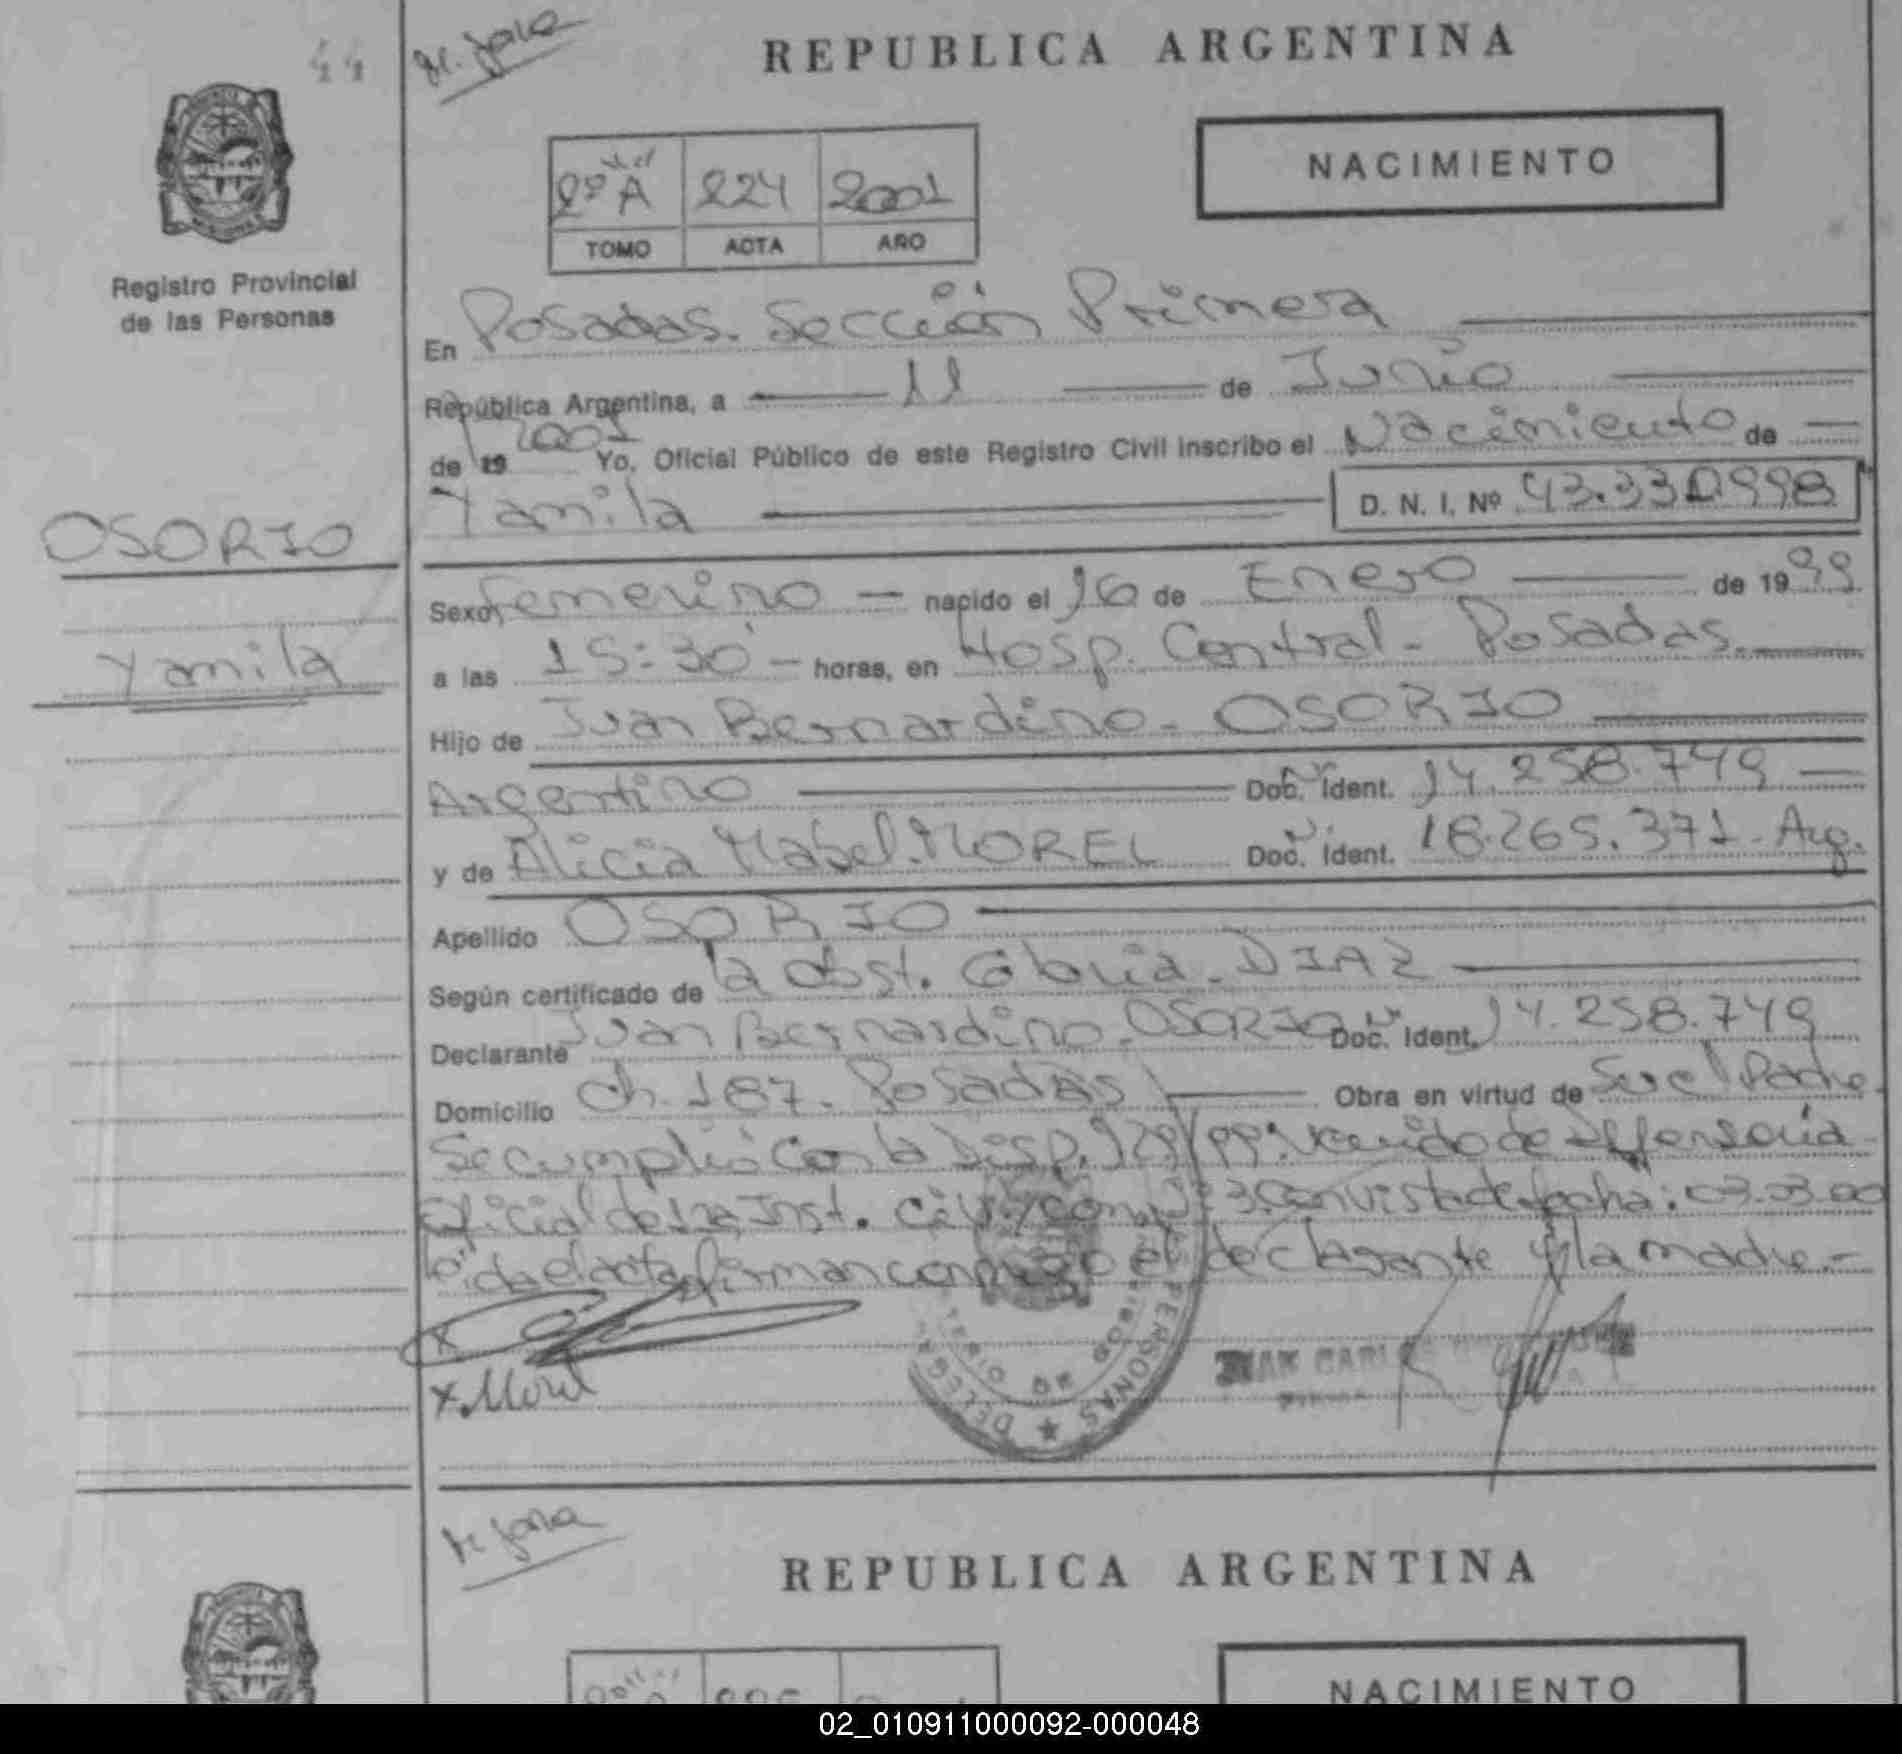 44
REPUBLICA ARGENTINA
NACIMIENTO
2º A 224 2001
TOMO ACTA AÑO
Registro Provincial
de las Personas
En Posadas. Sección Primera
República Argentina, a 11 de Junio
de 19 2001 Yo, Oficial Público de este Registro Civil inscribo el Nacimiento de
Yamila D. N. I. Nº 43.330998
OSORIO
Yamila
Sexo, femenino nacido el 16 de Enero de 1999
a las 15:30 horas, en Hosp. Central - Posadas.
Hijo de Juan Bernardino - OSORIO
Argentino Doc. Ident. 14.258.749
y de Alicia Mabel. MOREL Doc. Ident. 18.265.371 - Arg.
Apellido OSORIO
Según certificado de la obst. Gloria - DIAZ
Declarante Juan Bernardino - OSORIO Doc. Ident. 14.258.749
Domicilio Ch. 187 - Posadas Obra en virtud de Ser el Padre
Se cumplió con la Disp. 129/99 de Defensoria
Oficial de 1ra Inst. Civil y Com 3. con vista de fecha: 03.03.00
leida el acta firman conmigo el declarante y la madre.-
x
x. Morel
JUAN CARLOS
PERSONAS ★ DELEG
REPUBLICA ARGENTINA
NACIMIENTO
02_010911000092-000048